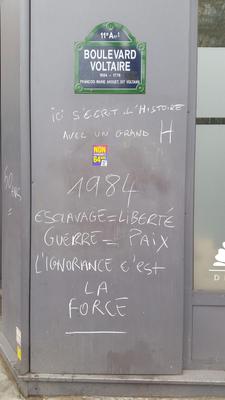 11e Arrt
BOULEVARD
VOLTAIRE
1694 - 1778
FRANÇOIS MARIE AROUET, DIT VOLTAIRE
ici S'ECRIT L'HISTOIRE
AVEC UN GRAND H
NON
64 ANS
1984
ESCLAVAGE = LIBERTÉ
GUERRE = PAIX
L'IGNORANCE c'est
LA
FORCE